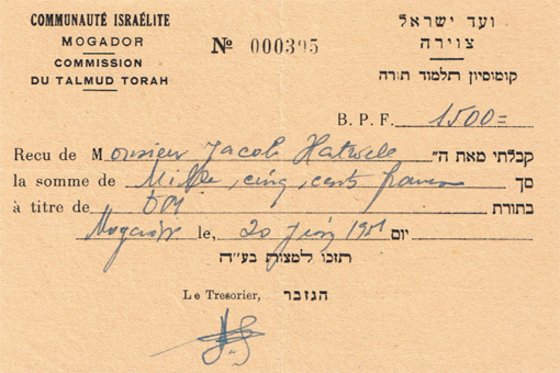 COMMUNAUTÉ ISRAÉLITE
MOGADOR
COMMISSION
DU TALMUD TORAH
Nº 000395
ועד ישראל
צוירה
קומוסיון תלמוד תורה
B. P. F. 1500=
Recu de Monsieur Jacob קבלתי מאת ה"
la somme de Mille, cinq, cents francs סך
à titre de בתורת
Mogador le, 20 Juin 1951 יום
תזכו למצות בע"ה
Le Tresorier, הגזבר